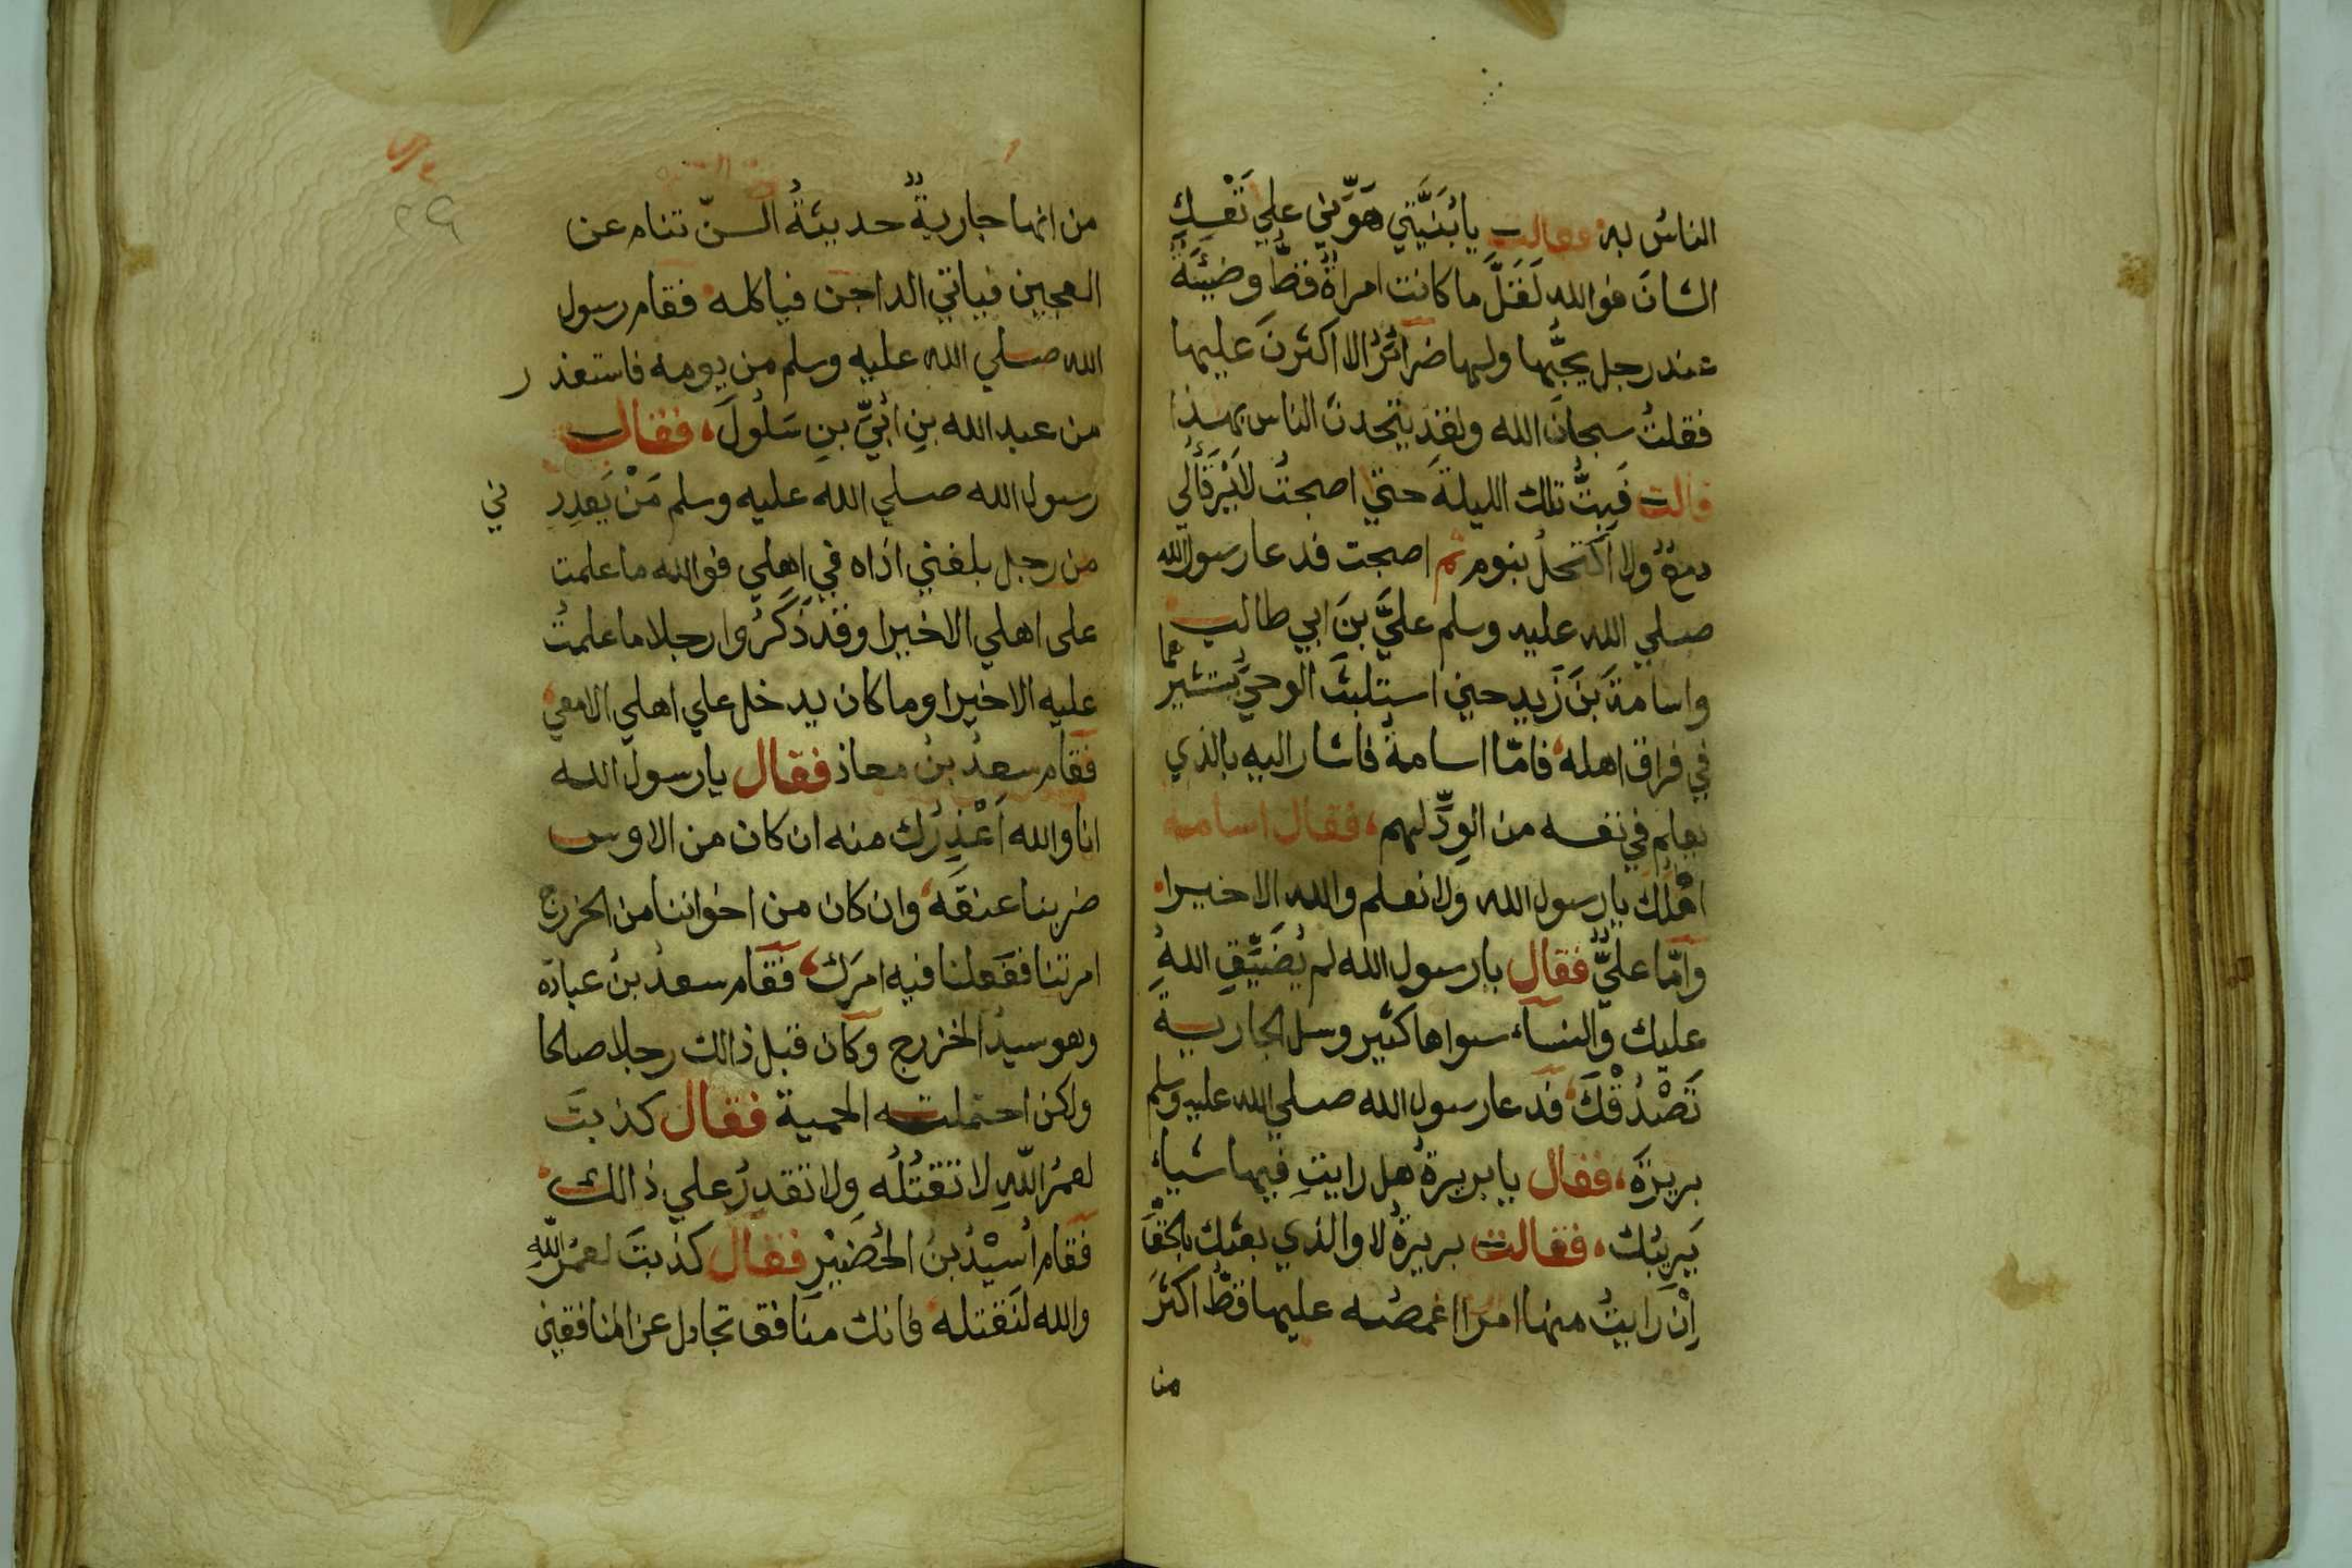 الناسُ به فقالت يا بُنَيَّتي هَوِّني علي نَفْسِكِ
الشانَ فوالله لَقَلَّ ما كانت امراةٌ قطُّ وضيئَةٌ
عند رجل يحبُّها ولها ضرائرُ الا اكثرنَ عليها
فقلتُ سبحانَ الله ولقد يتحدث الناس بهذا
قالت فَبِتُّ تلك الليلةَ حتي اصبحتُ لا يَرْقَأُ لي
دمعٌ ولا اكتحلُ بنوم ثم اصبحت فدعا رسول الله
صلي الله عليه وسلم عليَّ بنَ ابي طالب
واسامةَ بنَ زيد حين استلبثَ الوحيُ يستشيرهما
في فراق اهله فامّا اسامةُ فاشار اليه بالذي
يعلم في نفسه من الوِدِّ لهم فقال اسامة
اهْلُكَ يا رسول الله ولا نعلم والله الا خيرا
وامّا عليٌّ فقال يا رسول الله لم يُضَيِّقِ اللهُ
عليك والنساء سواها كثير وسل الجارية
تَصْدُقْكَ فدعا رسول الله صلي الله عليه وسلم
بريرَةَ فقال يا بريرةُ هل رايتِ فيها شياء
يَرِيبُك فقالت بريرةُ لا والذي بعثك بالحَقِّ
اِنْ رَايتُ منها امرا اغمصُه عليها قطُّ اكثرَ
من
٢٩
من انها جاريةٌ حديثةُ السنّ تنام عن
العجين فياتي الداجن فياكله فقام رسول
الله صلي الله عليه وسلم من يومه فاستعذر
من عبد الله بنِ اُبَيِّ بنِ سَلُولَ فقال
رسول الله صلي الله عليه وسلم مَنْ يَعذِرني
من رجل بلغني اذاه في اهلي فوالله ما علمت
على اهلي الا خيرا وقد ذَكَرُوا رجلا ما علمتُ
عليه الا خيرا وما كان يدخل علي اهلي الا معي
فقام سعدُ بنُ معاذ فقال يا رسول الله
انا والله اَعْذِرُك منه ان كان من الاوس
ضربنا عنقَه وان كان من اخواننا من الخزرج
امرتنا ففعلنا فيه امرَك فقام سعدُ بنُ عبادة
وهو سيدُ الخزرج وكان قبل ذالك رجلا صالحا
ولكن احتملته الحمية فقال كذبتَ
لعمرُ اللهِ لا تقتُلُه ولا تقدرُ علي ذالك
فقام اُسَيْدُ بنُ الحُضَيْرِ فقال كذبتَ لعمرُ اللهِ
والله لَنقتلنه فانك منافق تجادل عن المنافقين